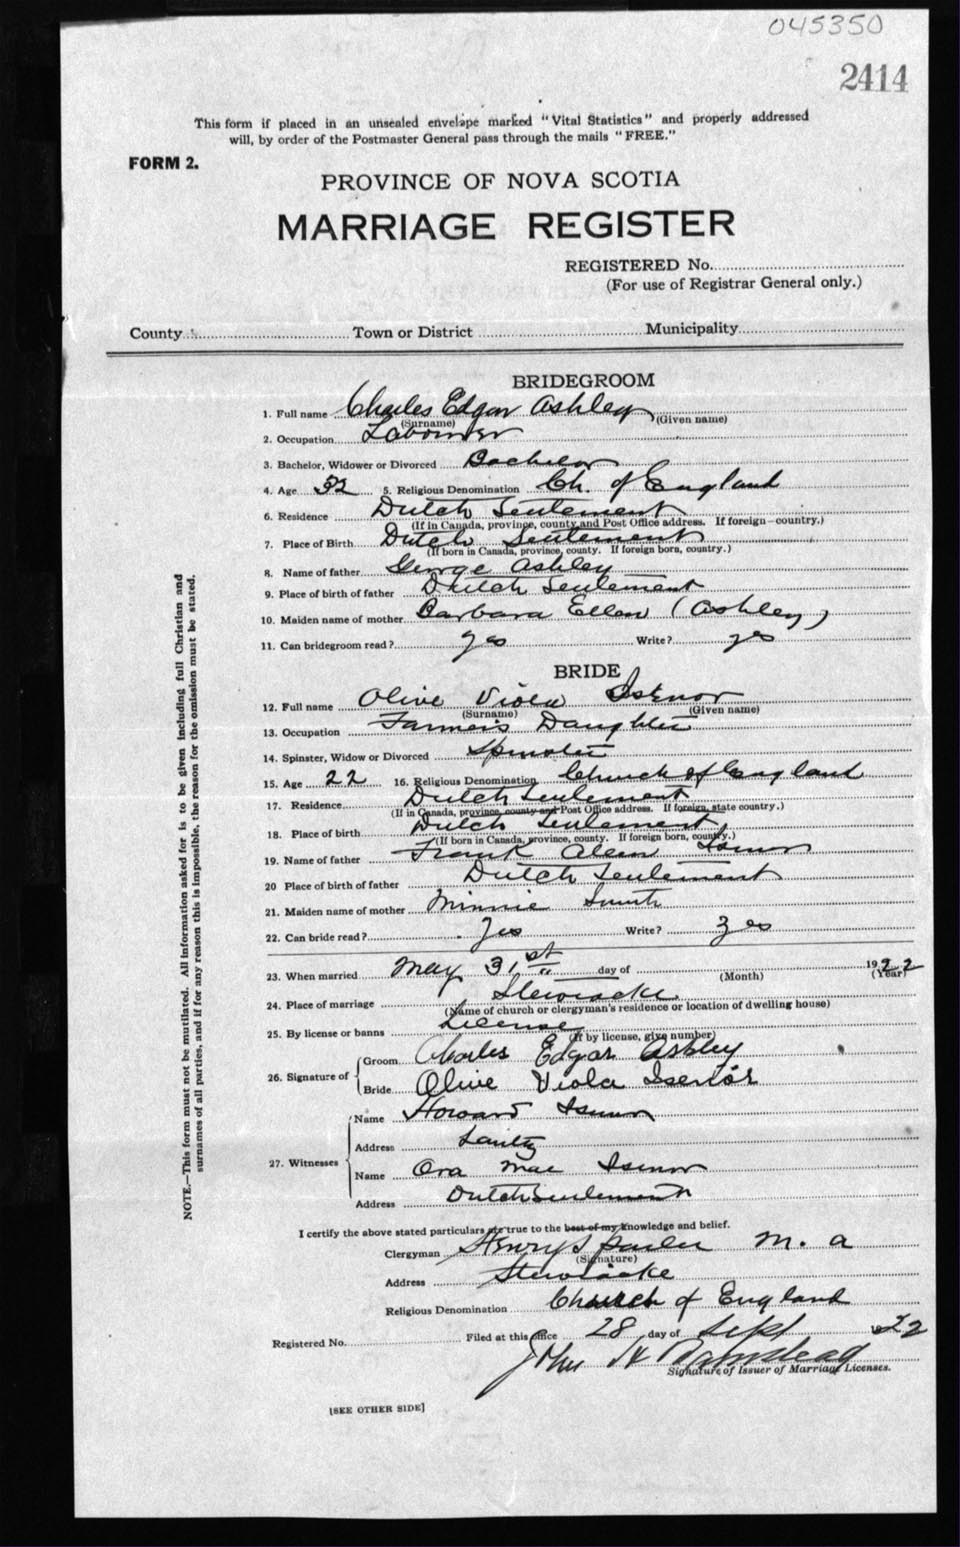 045350
2414
This form if placed in an unsealed envelope marked "Vital Statistics" and properly addressed
will, by order of the Postmaster General pass through the mails "FREE."
FORM 2.
PROVINCE OF NOVA SCOTIA
MARRIAGE REGISTER
REGISTERED No.
(For use of Registrar General only.)
County Town or District Municipality
BRIDEGROOM
1. Full name Charles Edgar Ashley
(Surname) (Given name)
2. Occupation Labourer
3. Bachelor, Widower or Divorced Bachelor
4. Age 32 5. Religious Denomination Ch. of England
6. Residence Dutch Settlement
(If in Canada, province, county and Post Office address. If foreign—country.)
7. Place of Birth Dutch Settlement
(If born in Canada, province, county. If foreign born, country.)
8. Name of father George Ashley
9. Place of birth of father Dutch Settlement
10. Maiden name of mother Barbara Ellen (Ashley)
11. Can bridegroom read? yes Write? yes
BRIDE
12. Full name Olive Viola Isenor
(Surname) (Given name)
13. Occupation Farmers Daughter
14. Spinster, Widow or Divorced Spinster
15. Age 22 16. Religious Denomination Church of England
17. Residence Dutch Settlement
(If in Canada, province, county and Post Office address. If foreign, state country.)
18. Place of birth Dutch Settlement
(If born in Canada, province, county. If foreign born, country.)
19. Name of father Frank Isenor
20 Place of birth of father Dutch Settlement
21. Maiden name of mother Minnie Smith
22. Can bride read? Yes Write? Yes
23. When married May 31st " day of (Month) 1922 (Year)
24. Place of marriage Stewiacke
(Name of church or clergyman's residence or location of dwelling house)
25. By license or banns License
(If by license, give number)
26. Signature of Groom Charles Edgar Ashley
Bride Olive Viola Isenor
27. Witnesses
Name Howard Isenor
Address Lantz
Name Ora Mae Isenor
Address Dutch Settlement
I certify the above stated particulars are true to the best of my knowledge and belief.
Clergyman Henry M. A
(Signature)
Address Stewiacke
Religious Denomination Church of England
Registered No. Filed at this office 28 day of Sept 1922
John
Signature of Issuer of Marriage Licenses.
[SEE OTHER SIDE]
NOTE.—This form must not be mutilated. All information asked for is to be given including full Christian and
surnames of all parties, and if for any reason this is impossible, the reason for the omission must be stated.